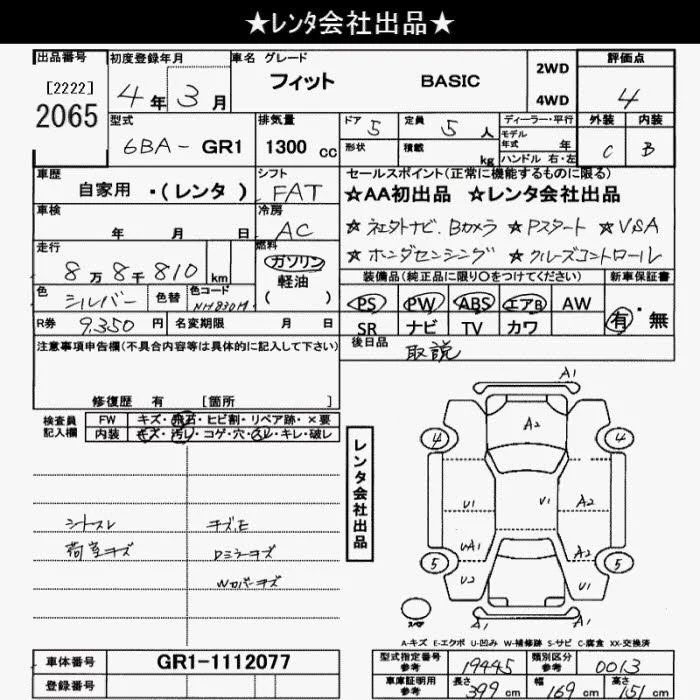 ★レンタ会社出品★
出品番号 初度登録年月 車名 グレード 評価点
[2222] 2065
4年 3月 フィット BASIC 2WD 4WD 4
型式 排気量 ドア 5 定員 5人 ディーラー・平行 外装 内装
6BA-GR1 1300cc 形状 積載 kg モデル年式 年 C B
ハンドル 右・左
車歴 シフト セールスポイント(正常に機能するものに限る)
自家用 ・(レンタ ) FAT ★AA初出品 ★レンタ会社出品
車検 年 月 日 冷房 AC ☆社外ナビ.Bカメラ ☆Pスタート ☆VSA
走行 燃料 ☆ホンダセンシング ☆クルーズコントロール
8万8千810km ガソリン 軽油 ( )
装備品(純正品に限り○をつけてください) 新車保証書
色 シルバー 色替 色コード NH830M PS PW ABS エアB AW 有・無
R券 9,350円 名変期限 月 日 SR ナビ TV カワ
注意事項申告欄(不具合内容等は具体的に記入して下さい) 後日品 取説
修復歴 有 [箇所 ]
検査員記入欄 FW キズ・飛石・ヒビ割・リペア跡・×要
内装 キズ・汚レ・コゲ・穴・スレ・キレ・破レ
レンタ会社出品
シートスレ チズ.E
荷室キズ Dミラーキズ
Wカバーキズ
A1
A2
4 4
U1 U1 A2
UA1 A2
5 5
U2 U1
A1
A-キズ E-エクボ U-凹み W-補修跡 S-サビ C-腐食 XX-交換済
車体番号 GR1-1112077 型式指定番号 参考 19445 類別区分 参考 0013
登録番号 車庫証明用 参考 長さ 399cm 幅 169cm 高さ 151cm